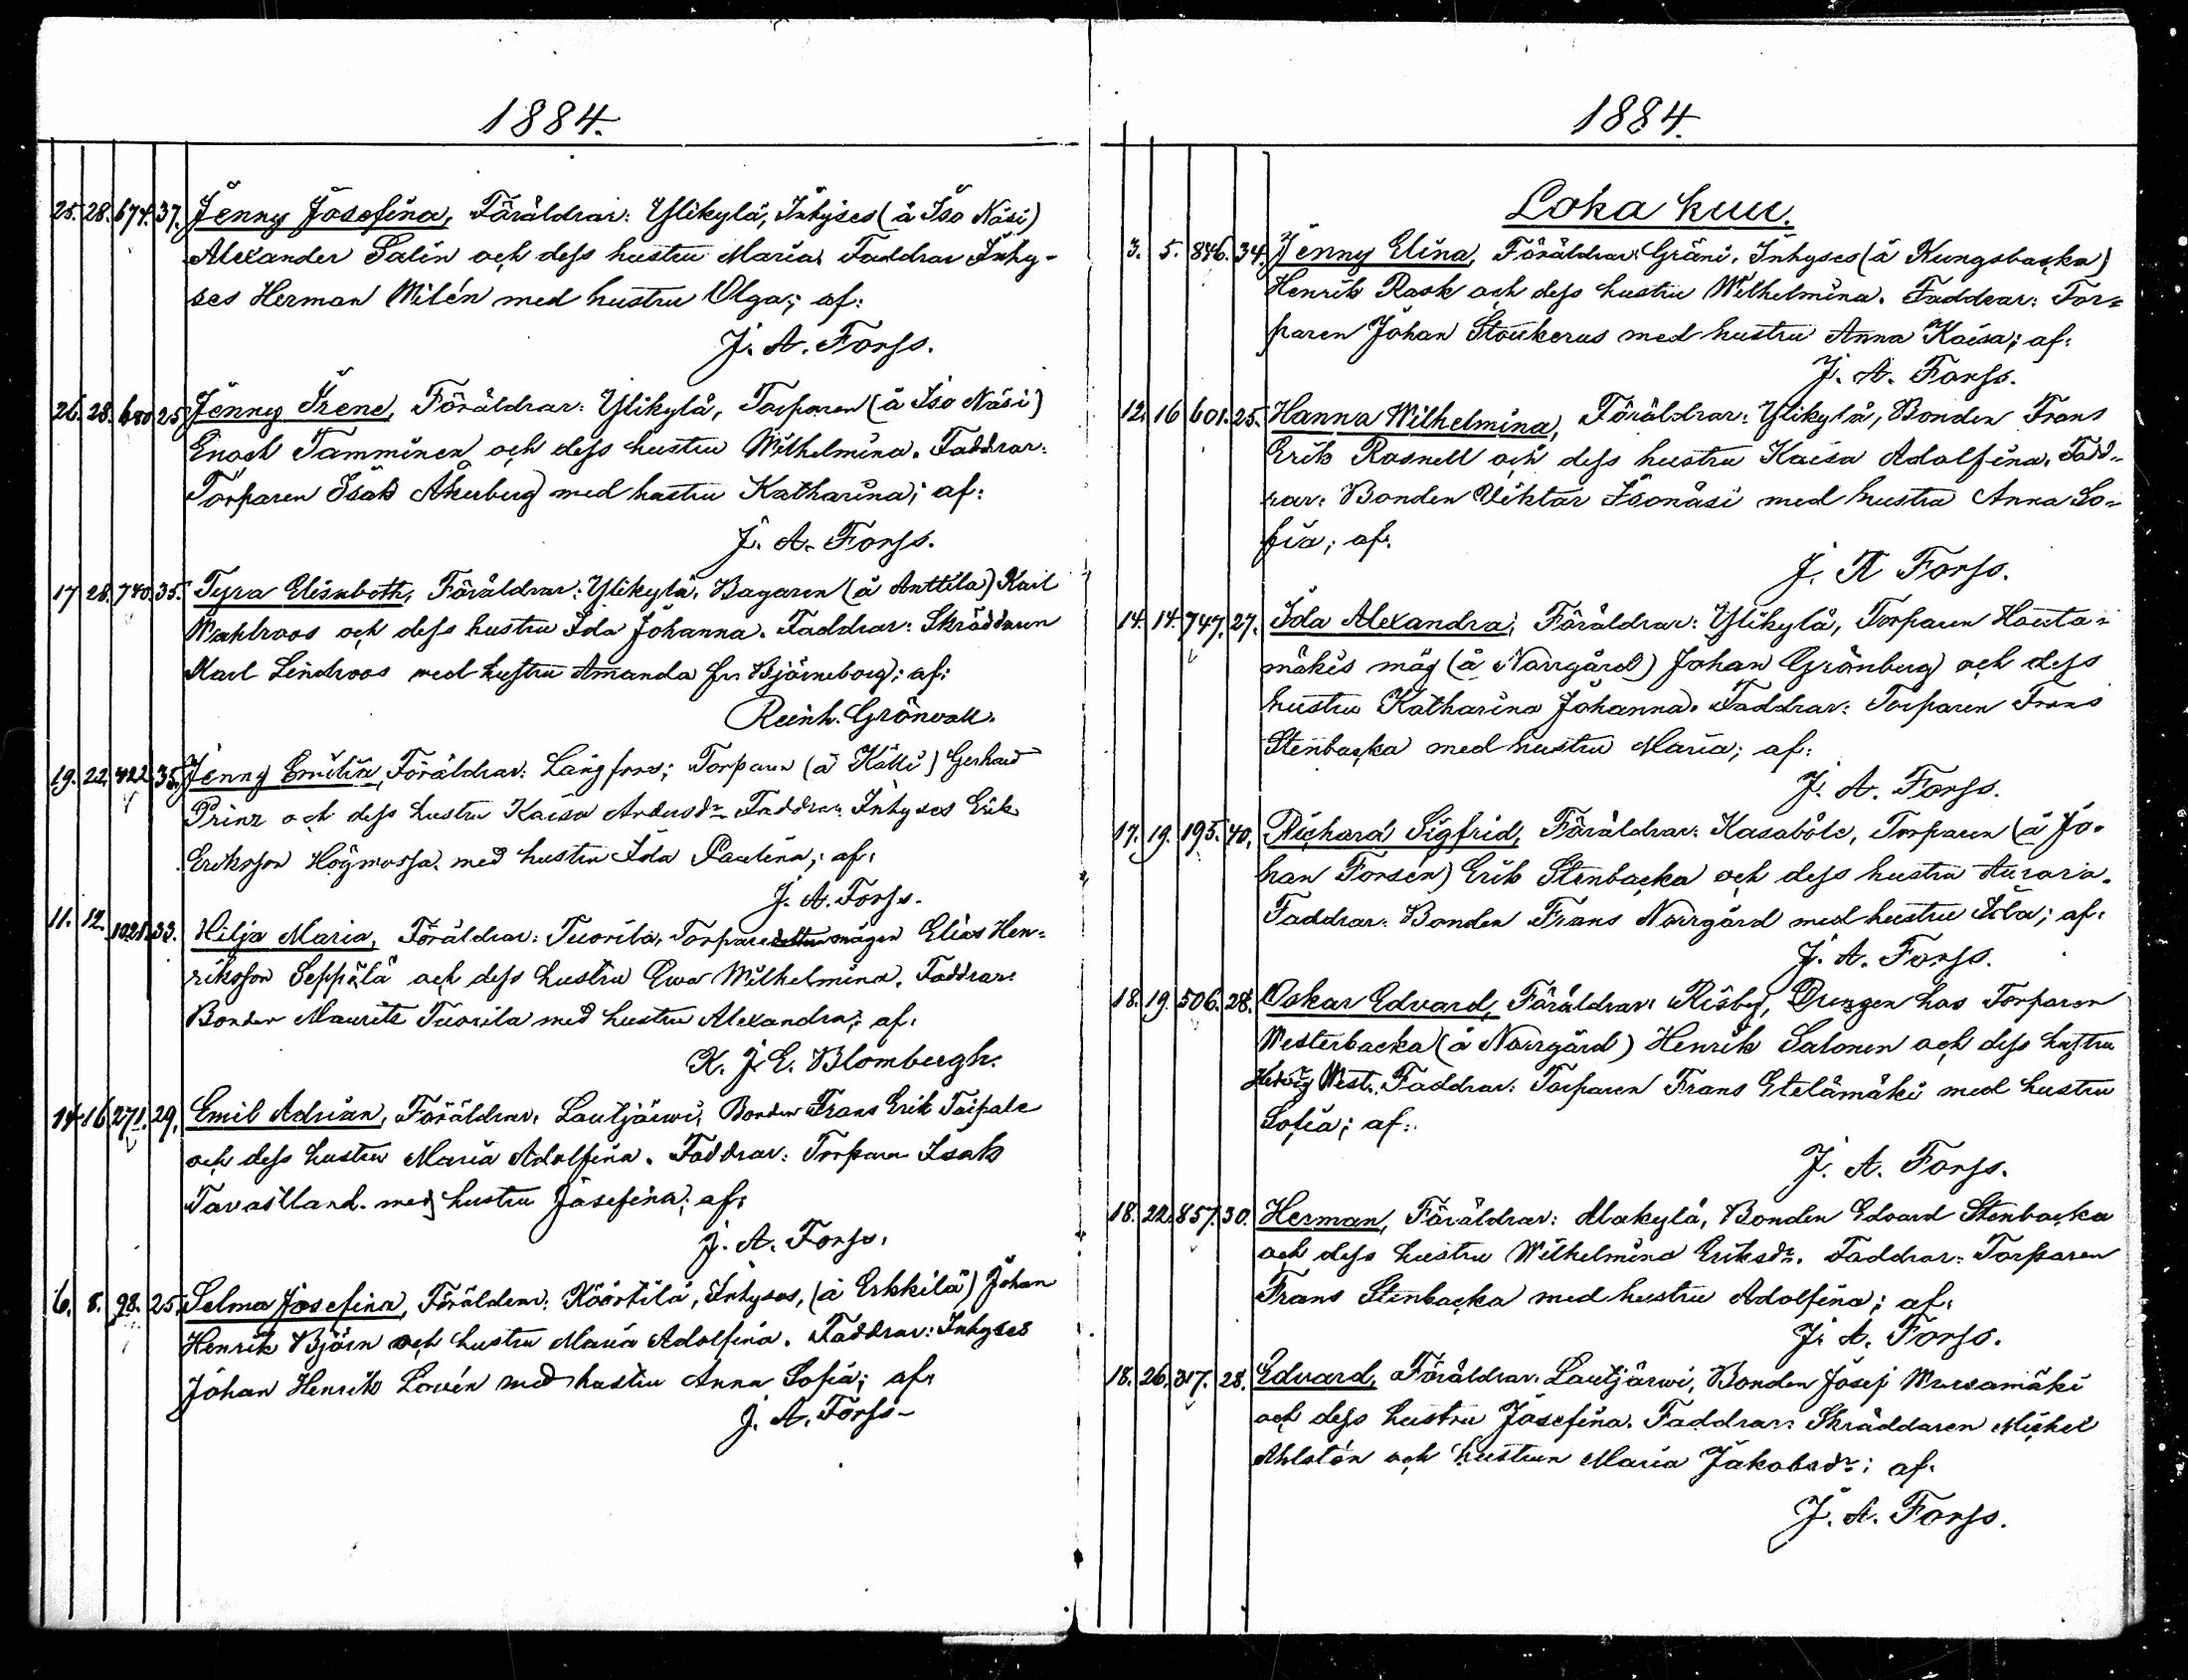 1884.
25. 28. 674. 37. Jenny Josefina, Föräldrar: Ylikylä, Inhyses (å Iso Näsi)
Alexander Salin och dess hustru Maria. Faddrar Inhy-
ses Herman Milén med hustru Olga; af:
J. A. Forss.
26. 28. 680 25 Jenny Irene, Föräldrar: Ylikylä, Torparen (å Iso Näsi)
Enoch Tamminen och dess hustru Wilhelmina. Faddrar:
Torparen Isak Åkerberg med hustru Katharina; af:
J. A. Forss.
17 28. 740. 35. Tyra Elisabeth, Föräldrar: Ylikylä, Bagaren (å Anttila) Karl
Wahlroos och dess hustru Ida Johanna. Faddrar: Skräddaren
Karl Lindroos med hustru Amanda frn Björneborg; af:
Reinh. Grönvall.
19. 22. 422 35. Jenny Emilia, Föräldrar: Långfors; Torparen (å Källi) Gerhard
Prinz och dess hustru Kaisa Andersdr. Faddrar: Inhyses Erik
Eriksson Högmossa. med hustru Ida Paulina; af:
J. A. Forss.
11. 12. 1021. 33. Hilja Maria, Föräldrar: Tuorila, Torpare mågen Elias Hen-
riksson Seppälä och dess hustru Ewa Wilhelmina. Faddrar:
Bonden Maurits Tuorila med hustru Alexandra; af:
K. J. E. Blombergh.
14 16 271. 29. Emil Adrian, Föräldrar: Lautjärwi, Bonden Frans Erik Taipale
och dess hustru Maria Adolfina. Faddrar: Torparen Isak
Tavastland. med hustru Josefina; af:
J. A. Forss.
6. 8. 98. 25. Selma Josefina, Föräldrar: Köörtilä, Inhyses, (å Erkkilä) Johan
Henrik Björn och hustru Maria Adolfina. Faddrar: Inhyses
Johan Henrik Lovén med hustru Anna Sofia; af:
J. A. Forss-
1884.
Loka kuu.
3. 5. 846. 34. Jenny Elina, Föräldrar: Gräni, Inhyses (å Kungsbacka)
Henrik Rask och dess hustru Wilhelmina. Faddrar: Tor-
paren Johan Stoukerus med hustru Anna Kaisa; af:
J. A. Forss.
12. 16 601. 25. Hanna Wilhelmina, Föräldrar: Ylikylä, Bonden Frans
Erik Rosnell och dess hustru Kaisa Adolfina. Fadd-
rar: Bonden Viktor Isonäsi med hustru Anna So-
fia; af:
J. A Forss.
14. 14. 747. 27. Ida Alexandra, Föräldrar: Ylikylä, Torparen Houta-
mäkis måg (å Norrgård) Johan Grönberg och dess
hustru Katharina Johanna. Faddrar: Torparen Frans
Stenbacka med hustru Maria; af:
J. A. Forss.
17. 19. 195. 40. Richard Sigfrid, Föräldrar: Kasaböle, Torparen (å Jo-
han Forsén) Erik Stenbacka och dess hustru Aurora.
Faddrar: Bonden Frans Norrgård med hustru Ida; af:
J. A. Forss.
18. 19. 506. 28. Oskar Edvard, Föräldrar: Risby, Drengen hos Torparen
Westerbacka (å Norrgård) Henrik Salonen och dess hustru
Hedvig West. Faddrar: Torparen Frans Etelämäki med hustru
Sofia; af:
J. A. Forss.
18. 22. 857. 30. Herman, Föräldrar: Alakylä, Bonden Edvard Stenbacka
och dess hustru Wilhelmina Eriksdr. Faddrar: Torparen
Frans Stenbacka med hustru Adolfina; af:
J. A. Forss.
18. 26. 317. 28. Edvard, Föräldrar: Lautjärwi, Bonden Josef Mursamäki
och dess hustru Josefina. Faddrar: Skräddaren Mickel
Ahlstén och hustrun Maria Jakobsdr; af:
J. A. Forss.